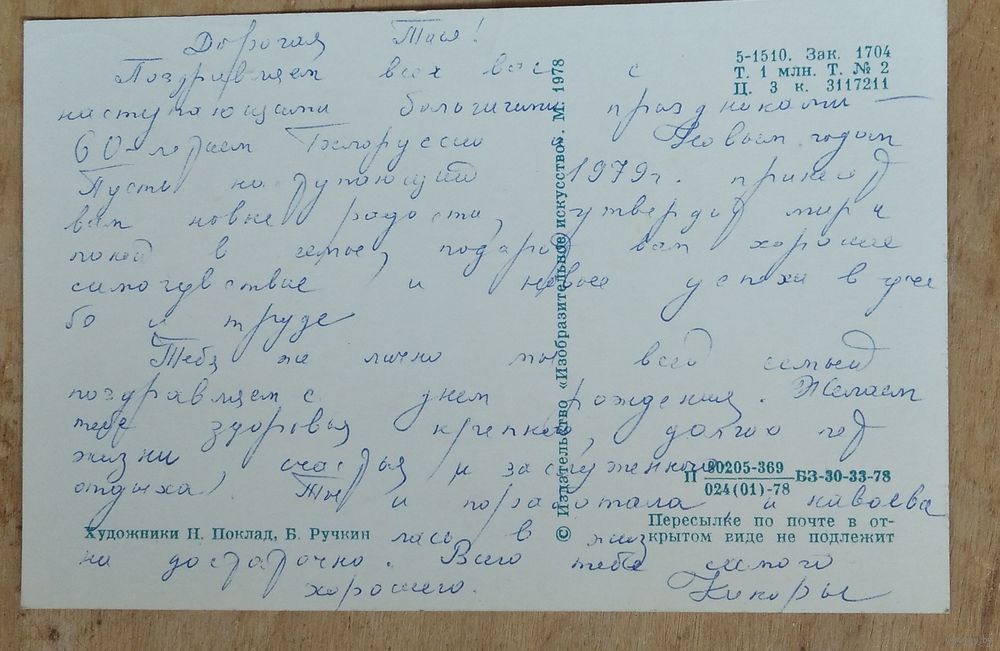 Дорогая Тася!
Поздравляем всех вас с
наступающими большими праздниками —
60-летием Белоруссии Новым годом
Пусть наступающий 1979г. принесет
вам новые радости, утвердит мир и
покой в семье, подарит вам хорошее
самочувствие и новые успехи в уче
бе и труде
Тебя же лично мы всей семьей
поздравляем с днем рождения. Желаем
тебе здоровья крепкого, долгих лет
жизни, счастья и заслуженного
отдыха. Ты и поработала и навоева
лась в жиз
ни достаточно. Всего тебе самого
хорошего.
5-1510. Зак. 1704
Т. 1 млн. Т. № 2
Ц. 3 к. 3117211
© Издательство «Изобразительное искусство». М. 1978
П 80205-369 БЗ-30-33-78
024(01)-78
Художники Н. Поклад, Б. Ручкин
Пересылке по почте в от-
крытом виде не подлежит